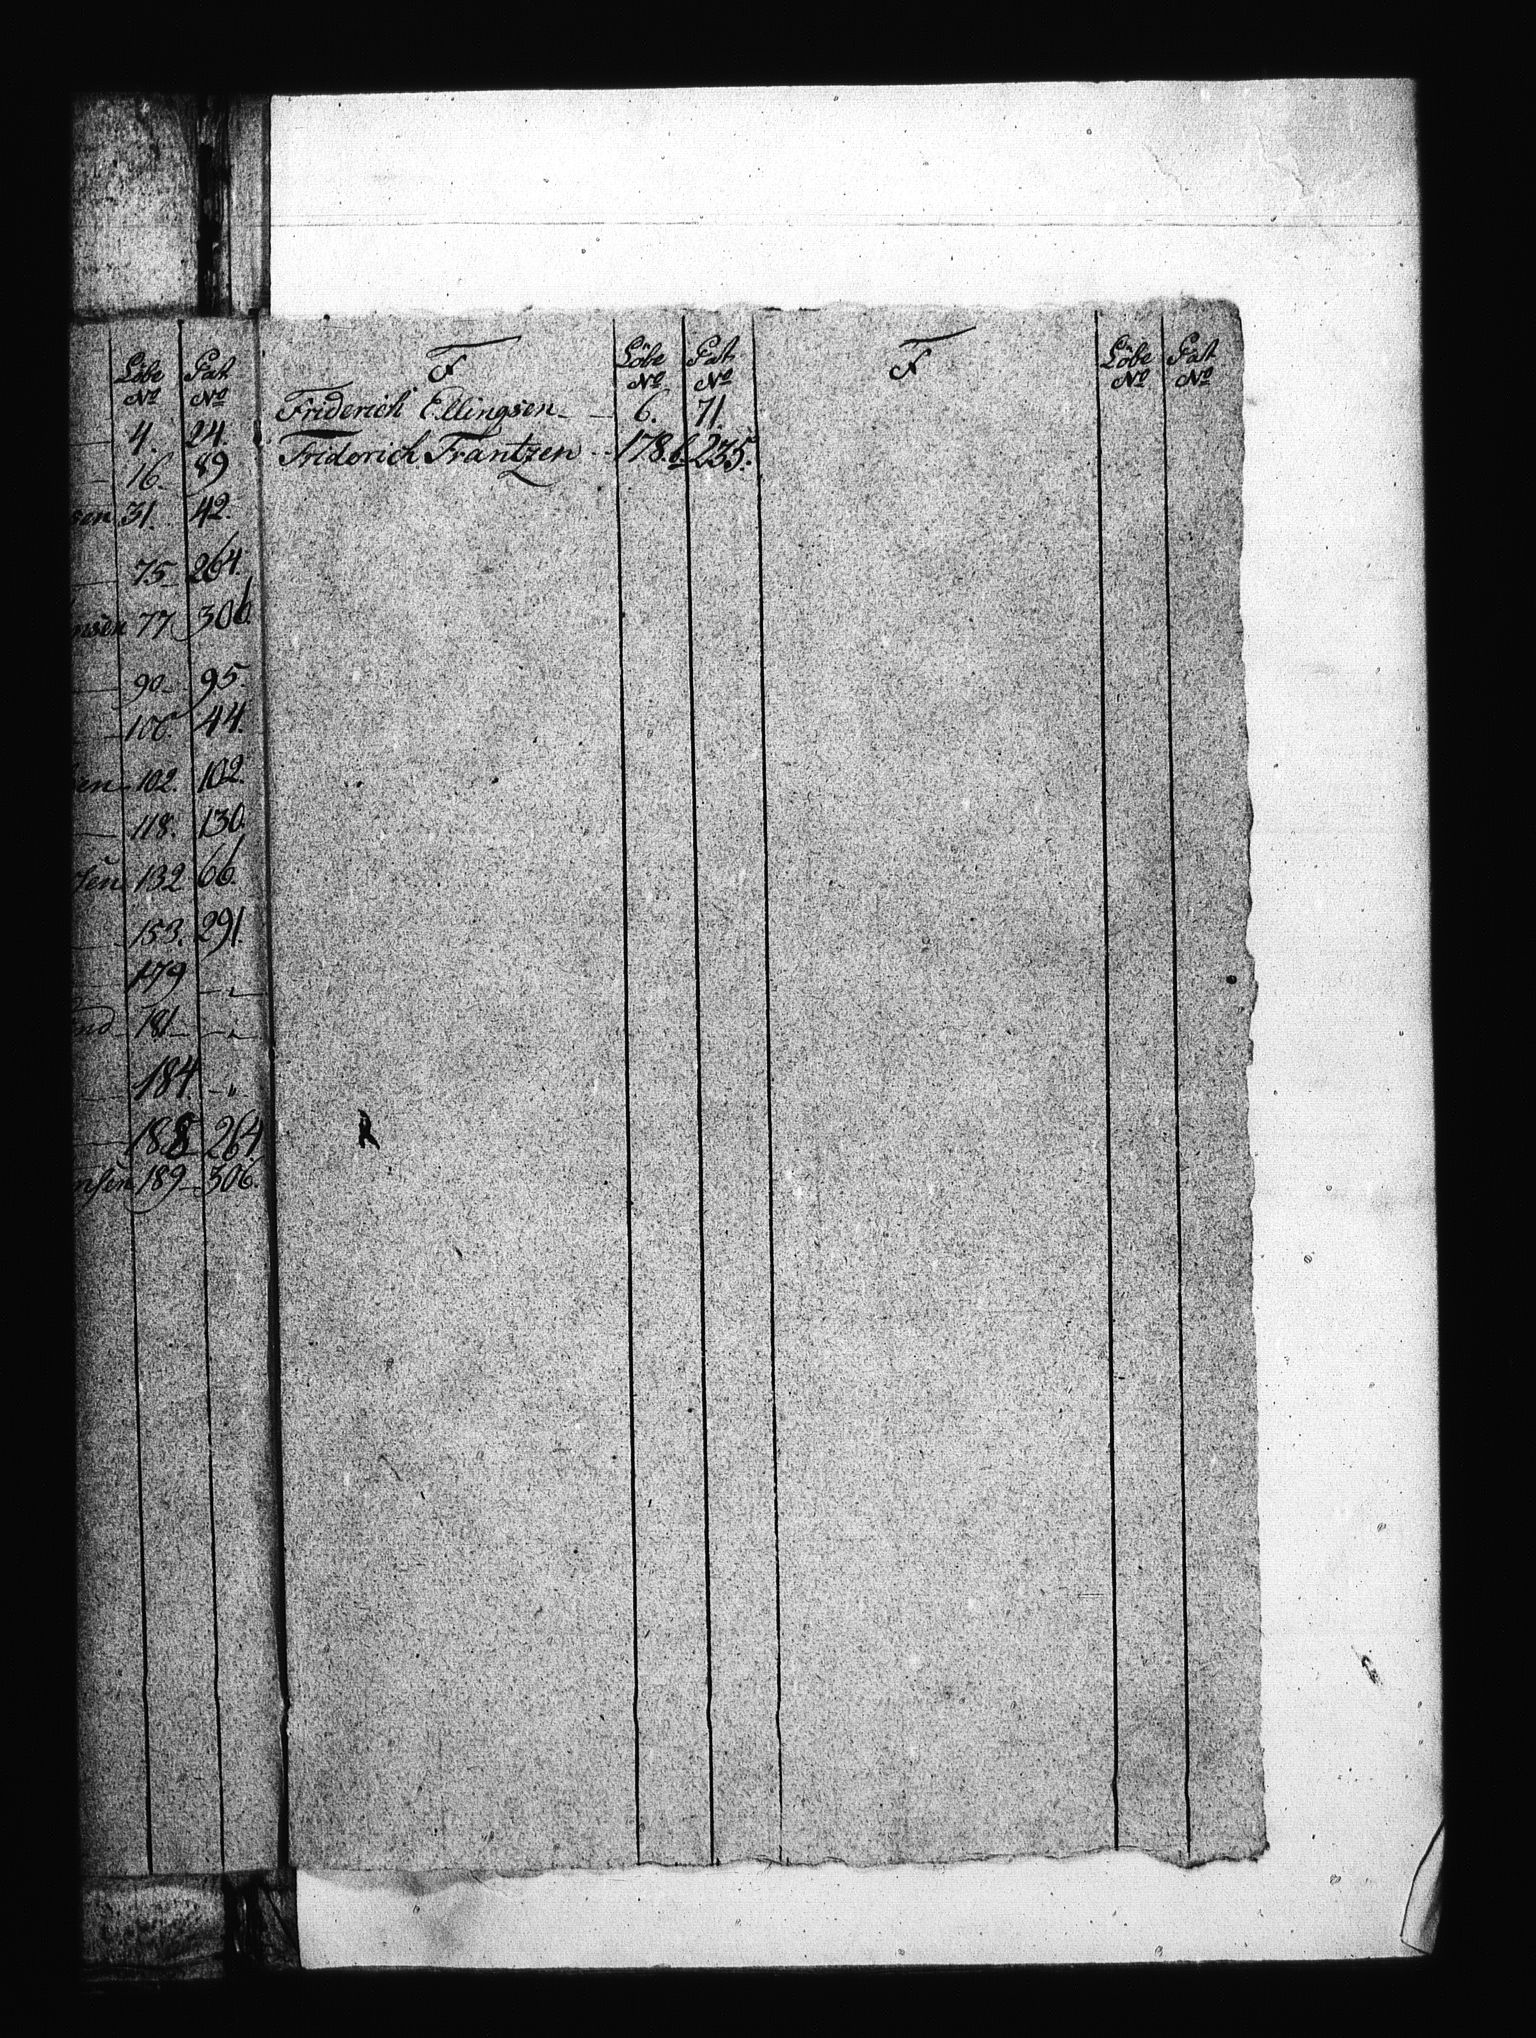 Löbe No Pat No
4. 24.
16. 89
sen 31. 42.
75 264.
nsen 77 306.
90 95.
100. 44.
sen 102. 102.
118. 130.
sen 132 66.
153. 291.
179 - „ -
181 - „ -
184. - „ -
188 264.
nsen 189 306.
F Löbe No Pat No
Friderich Ellingsen 6. 71.
Friderich Frantzen 178.b 235.
F Löbe No Pat No